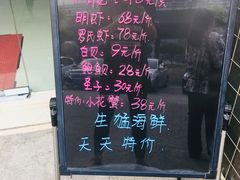 明虾: 68元/斤
罗氏虾: 78元/斤
白贝: 9元/斤
鲍鱼: 28元/斤
圣子: 30元/斤
特价·小花蟹: 38元/斤
生猛海鲜
天天特价